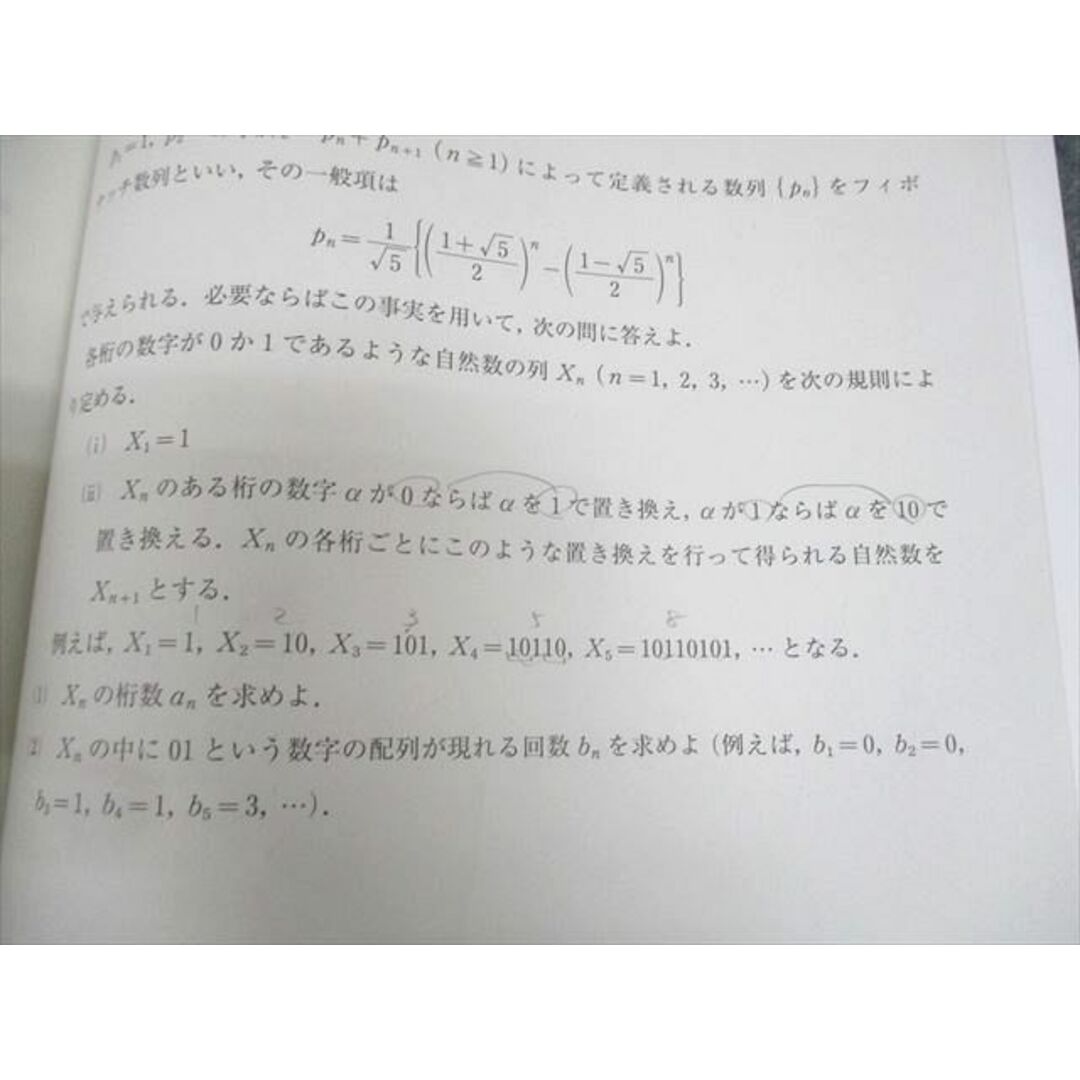 p₁=1, pₙ+pₙ₊₁ (n≧1) によって定義される数列 {pₙ} をフィボ
ッチ数列といい, その一般項は
pₙ = 1/√5 {((1+√5)/2)ⁿ − ((1−√5)/2)ⁿ}
で与えられる. 必要ならばこの事実を用いて, 次の問に答えよ.
各桁の数字が 0 か 1 であるような自然数の列 Xₙ (n=1, 2, 3, …) を次の規則によ
り定める.
(i) X₁=1
(ii) Xₙ のある桁の数字 α が 0 ならば α を 1 で置き換え, α が 1 ならば α を 10 で
置き換える. Xₙ の各桁ごとにこのような置き換えを行って得られる自然数を
Xₙ₊₁ とする.
1 2 3 5 8
例えば, X₁=1, X₂=10, X₃=101, X₄=10110, X₅=10110101, … となる.
(1) Xₙ の桁数 aₙ を求めよ.
(2) Xₙ の中に 01 という数字の配列が現れる回数 bₙ を求めよ (例えば, b₁=0, b₂=0,
b₃=1, b₄=1, b₅=3, …).